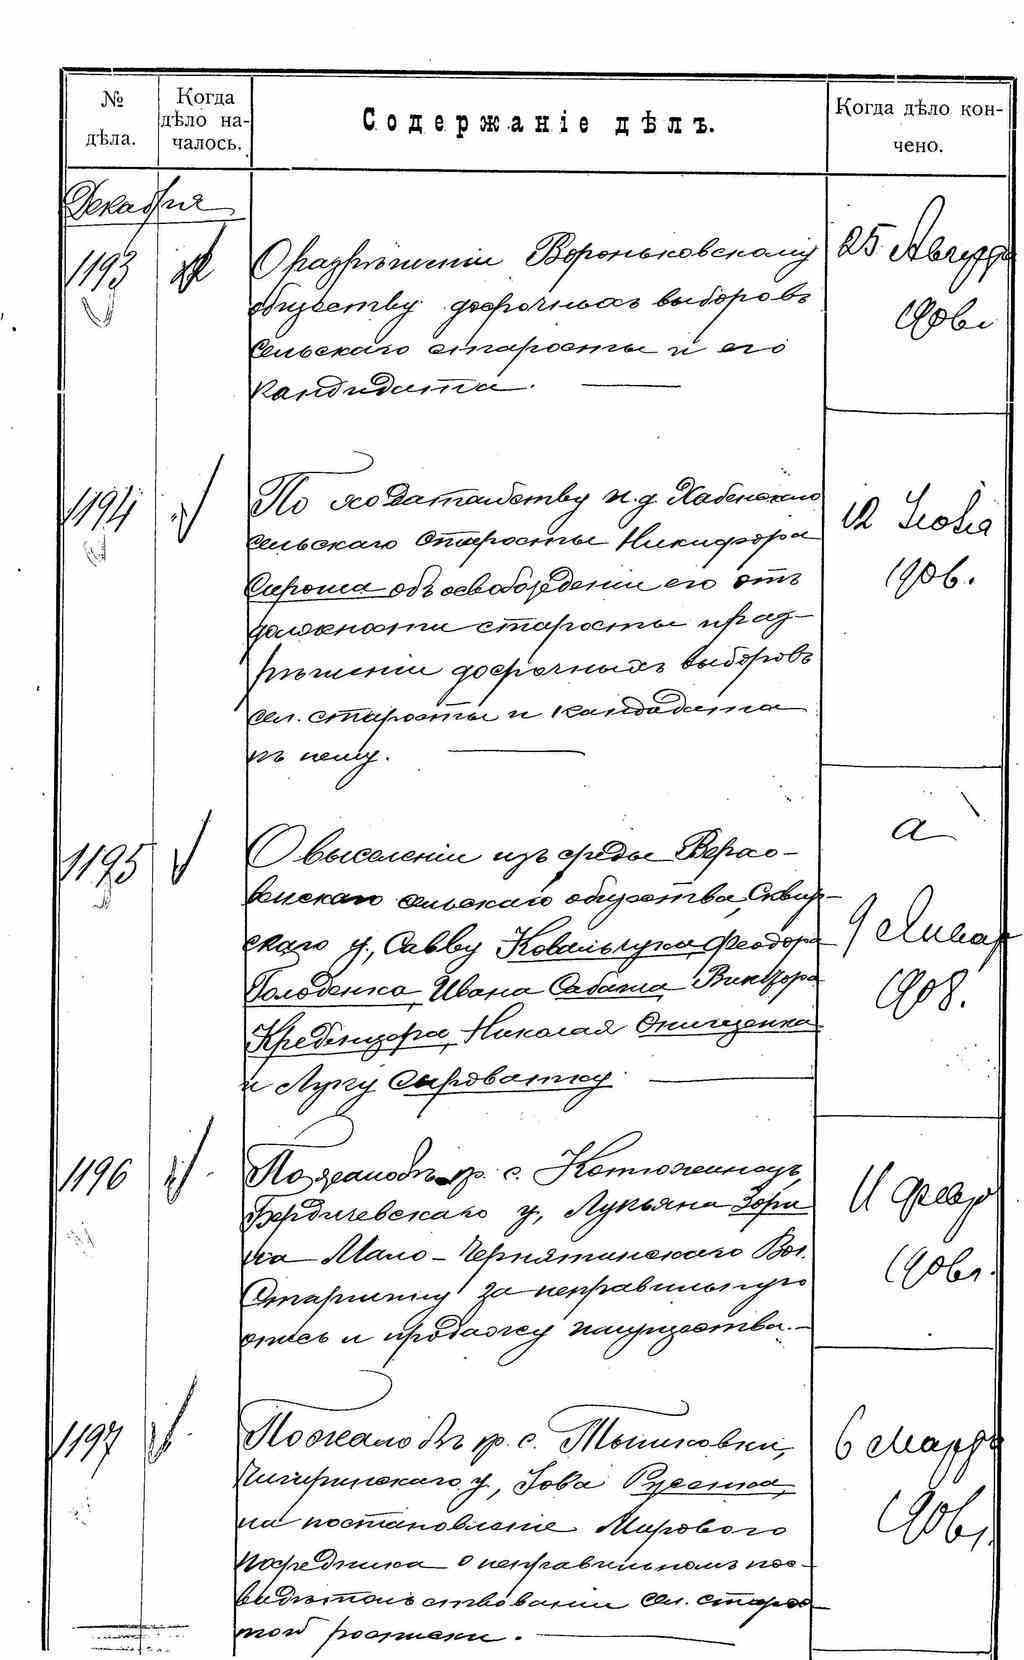 № дѣла.
Когда дѣло на-
чалось.
Содержаніе дѣлъ.
Когда дѣло кон-
чено.
Декабря
1193
О разрѣшеніи Вороньковскому
обществу досрочныхъ выборовъ
сельскаго старосты и его
кандидата.
25 Августа
1906 г.
1194
По ходатайству и. д. Хабенскаго
сельскаго старосты Никифора
Сироша объ освобожденіи его отъ
должности старосты и раз-
рѣшеніи досрочныхъ выборовъ
сел. старосты и кандидата
къ нему.
12 Іюля
1906.
1195
О выселеніи изъ среды
сельскаго общества, Сквир-
скаго у., Савву Ковальчука, Феодора
Голоденка, Ивана Сабаша, Виктора
Кребенцора, Николая Онищенка
и Луку Сыроватку.
а
9 Январ
1908.
1196
По жалобѣ кр. с. Котюжинецъ,
Бердичевскаго у., Лукьяна Зори
на Мало-Чернятинскаго Вол.
Старшину за неправильную
опись и продажу имущества.-
11 Февр
1906 г.
1197
По жалобѣ кр. с. Тышковки,
Чигиринскаго у., Іова Русенка,
на постановленіе Мирового
посредника о неправильномъ зас-
видѣтельствованіи сел. старос-
той росписки.
6 Марта
1906 г.